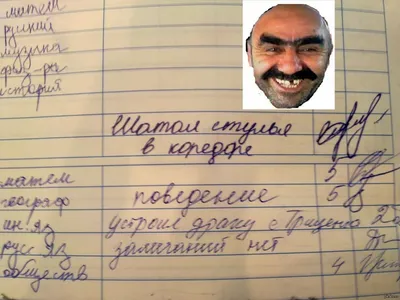 матем
русский
музыка
физ-ра
история
Шатал стулья
в коредоре
матем 5
географ поведение 5
ин. яз устроил драку с Гриценко 2
рус яз замечаний нет
обществ 4